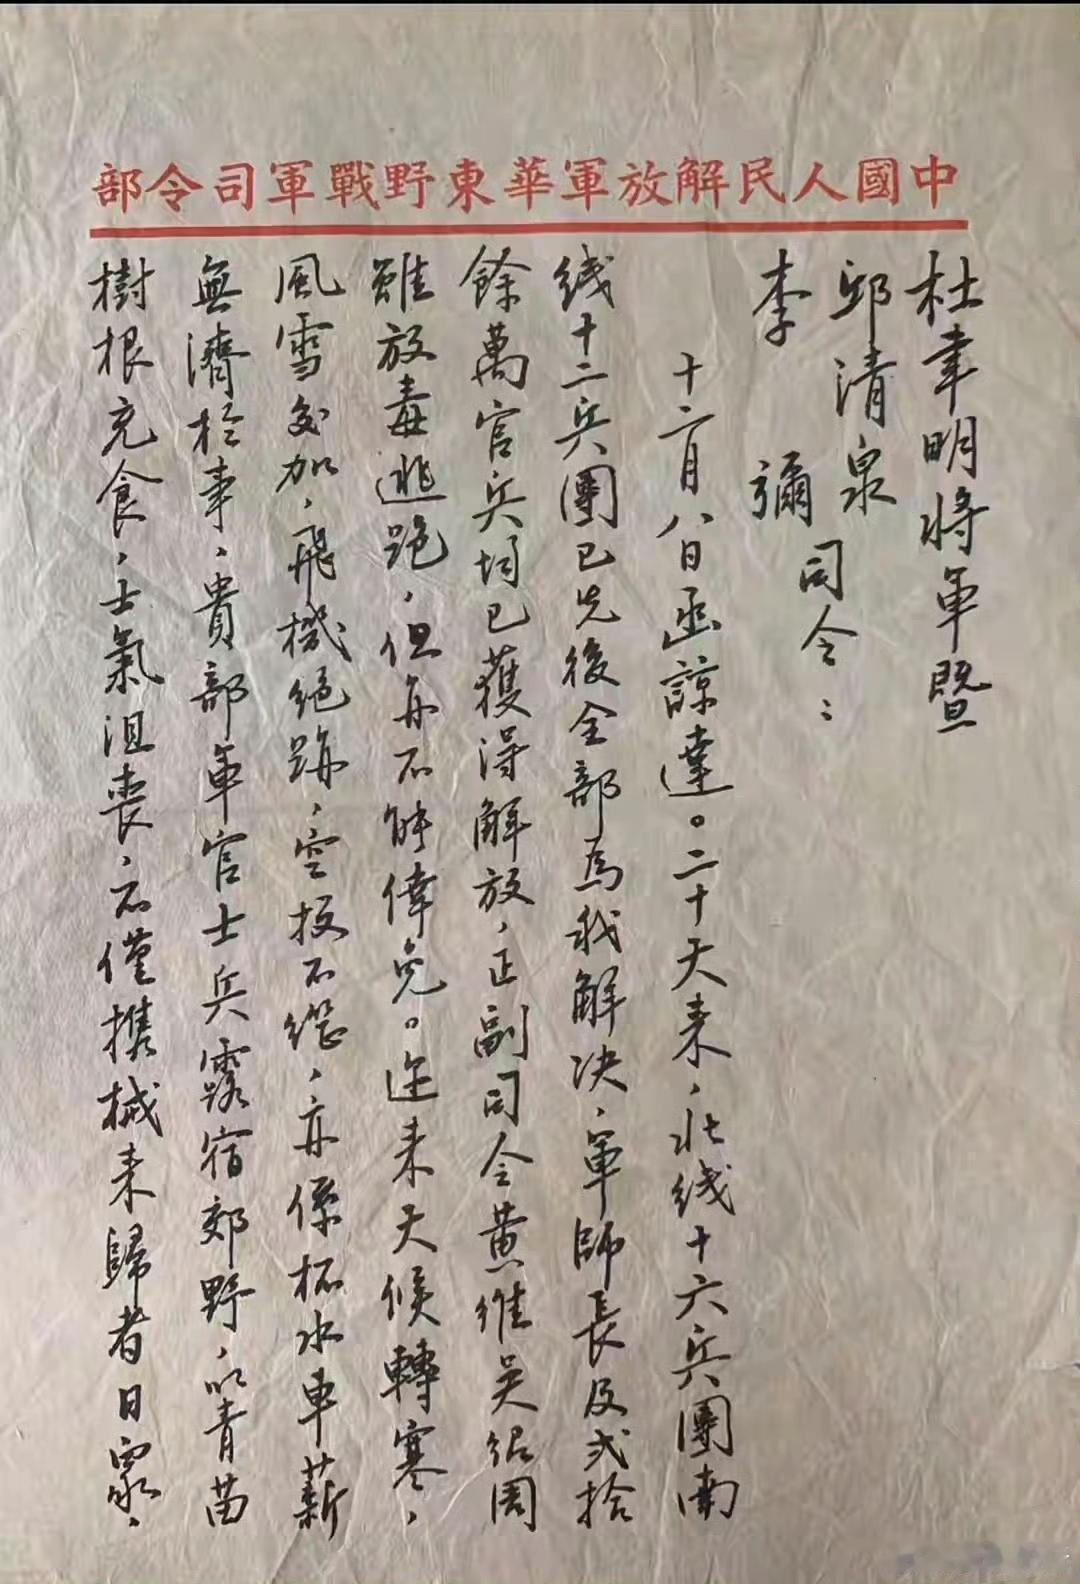 中國人民解放軍華東野戰軍司令部
杜聿明將軍暨
邱清泉
李　彌
司令：
十二月八日函諒達。二十天来，北线十六兵團南
线十二兵團已先後全部為我解决，軍師長及弍拾
餘萬官兵均已獲得解放，正副司令黄維吴绍周
雖放毒逃跑，但每不能倖免。近来天候轉寒，
風雪交加，飛機绝跡，空投不繼，亦係杯水車薪
無濟於事，貴部軍官士兵露宿郊野，以青苗
樹根充食，士氣沮喪，不僅携械来歸者日眾，